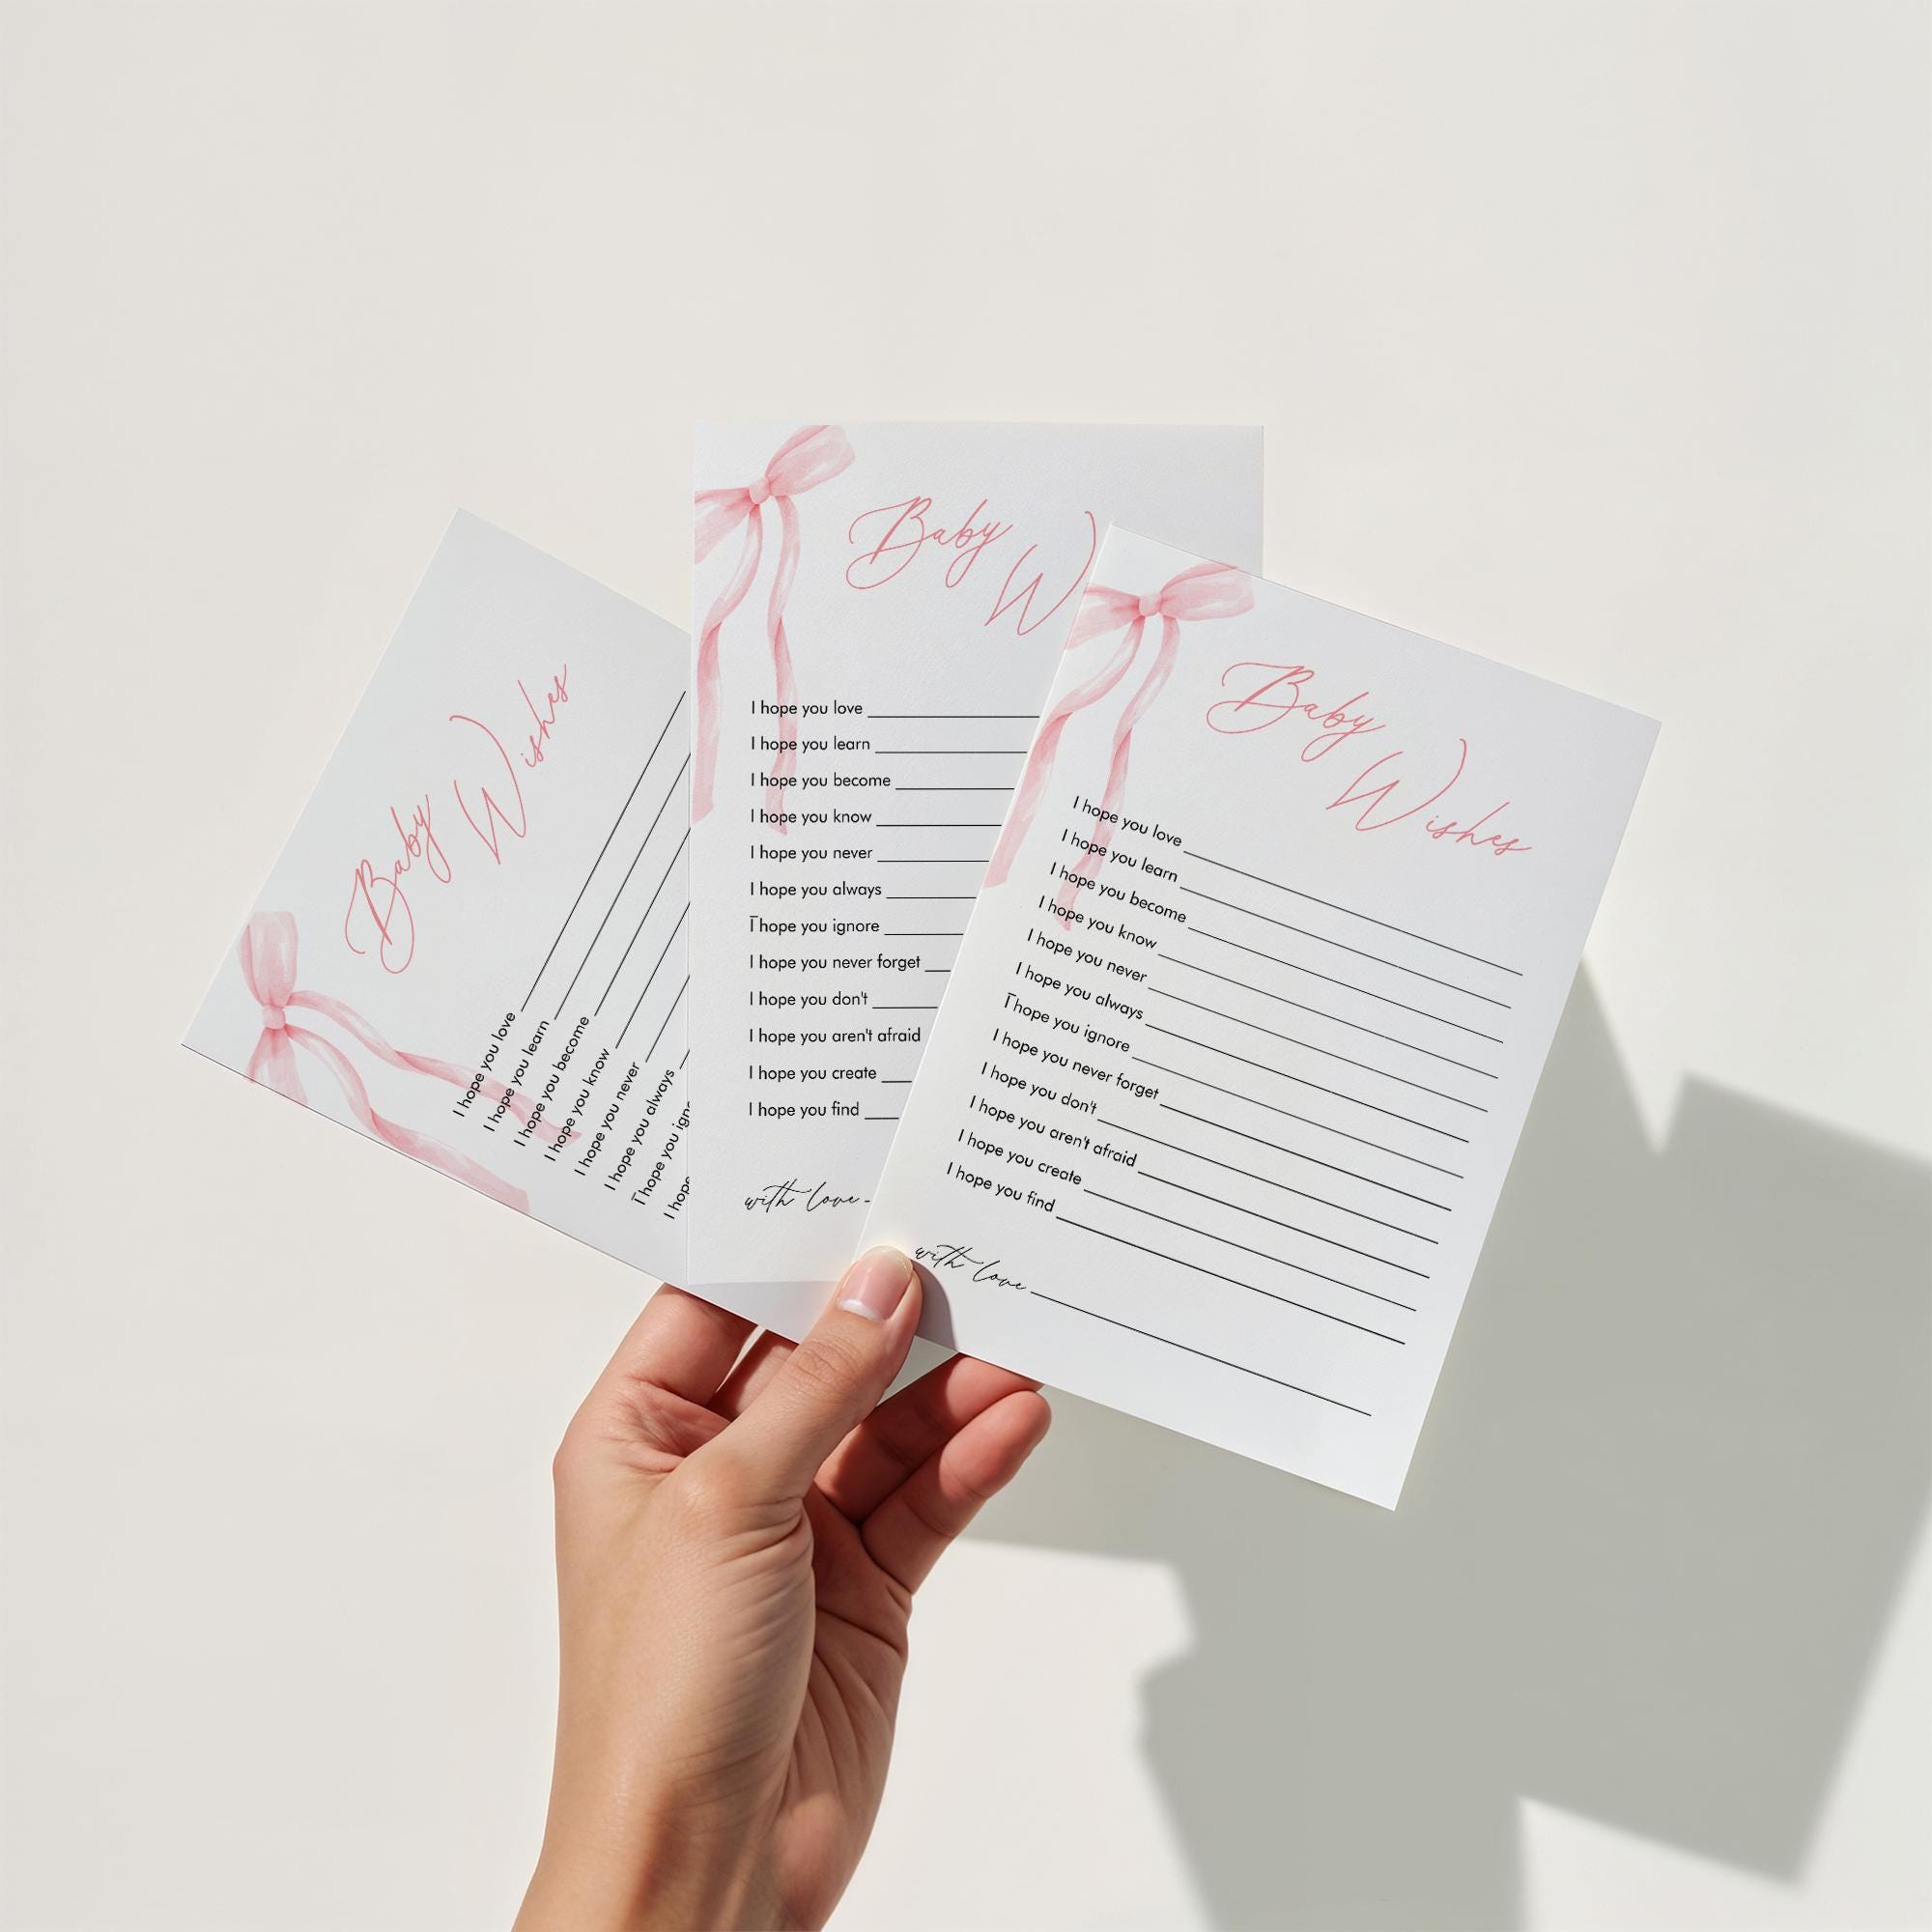 Baby
Wishes
I hope you love
I hope you learn
I hope you become
I hope you know
I hope you never
I hope you always
I hope you ign
I hope
Baby
W
I hope you love
I hope you learn
I hope you become
I hope you know
I hope you never
I hope you always
I hope you ignore
I hope you never forget
I hope you don't
I hope you aren't afraid
I hope you create
I hope you find
with love
Baby
Wishes
I hope you love
I hope you learn
I hope you become
I hope you know
I hope you never
I hope you always
I hope you ignore
I hope you never forget
I hope you don't
I hope you aren't afraid
I hope you create
I hope you find
with love